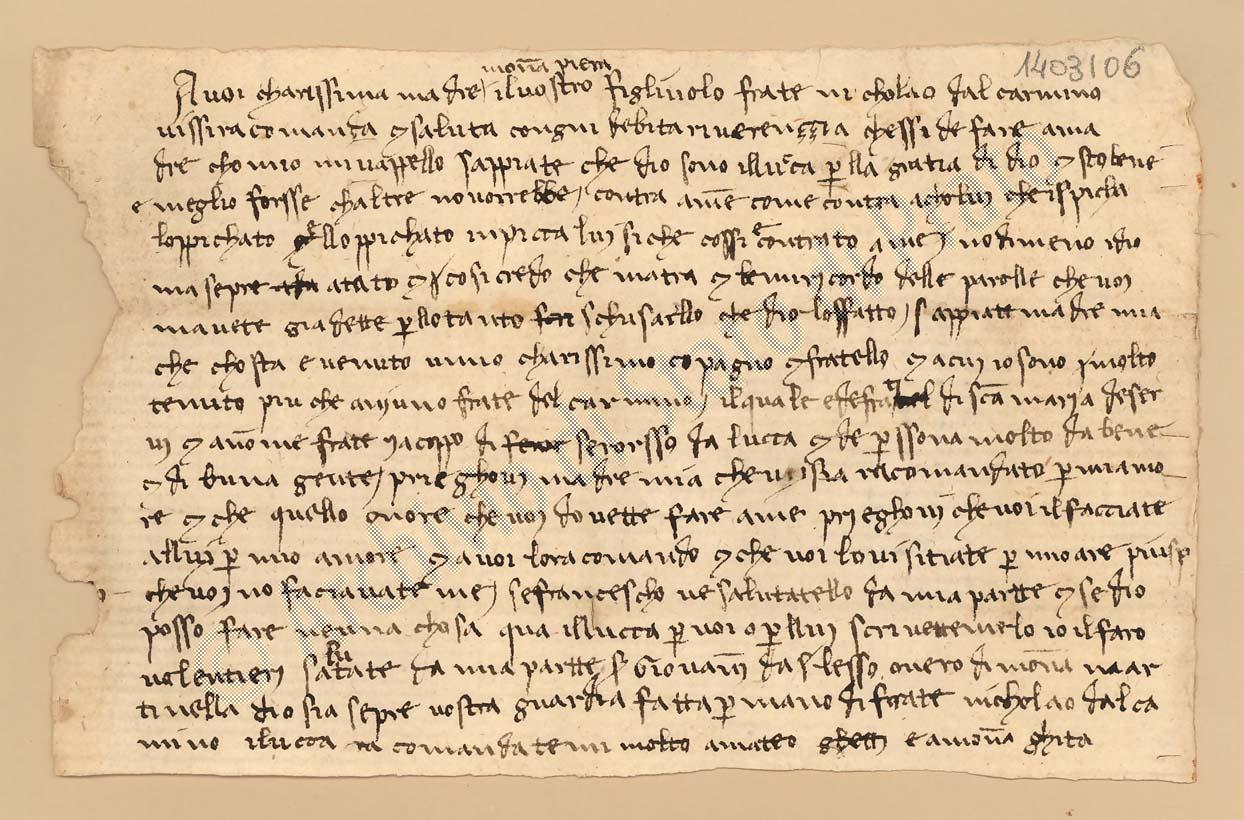 1403106
mona piera
A voi charissima madre, il vostro figliuolo frate nicholao dal carmino
vissi racomanda e saluta congni debita riverenzzia chessi de fare a ma
dre chomio mi vappello sappiate che dio sono illucca per lla gratia di dio e sto bene
e meglio forsse chaltre no vorrebbe, contra a me come contra acholui che
loppichato lloppichato si che cossi e contrato a me, nodimeno idio
ma sepre atato e cosi credo che e delle parolle che voi
mavete gia dette per llo tanto schusarllo che dio loffatto, sappiate madre mia
che chosta e venuto uno charissimo copagno e fratello e a cui io sono molto
tenuto piu che a niuno frate del carmino, il quale e di sca maria deser
vi e a nome frate iacopo di serorsso da lucca e de perssona molto da bene
e di buna gente, prieghovi madre mia che vi sia racomandato per mi amo
re e che quello onore che voi dovette fare a me prieghovi che voi il facciate
allui per mio amore e a voi lo racomando e che voi lo visitiate per mio are piu sp
che voi no faciavate me, se francescho ve salutatello da mia partte e se dio
posso fare neuna chosa qua illucca per voi o per llui scrivettemelo io il faro
volentieri salutate da mia partte Giovani da slesso overo di mona mar
tinella dio sia sepre vostra guardia fatta per mano di frate nicholao dal ca
mino ilucca racomandatemi molto a mateo e a mona ghita